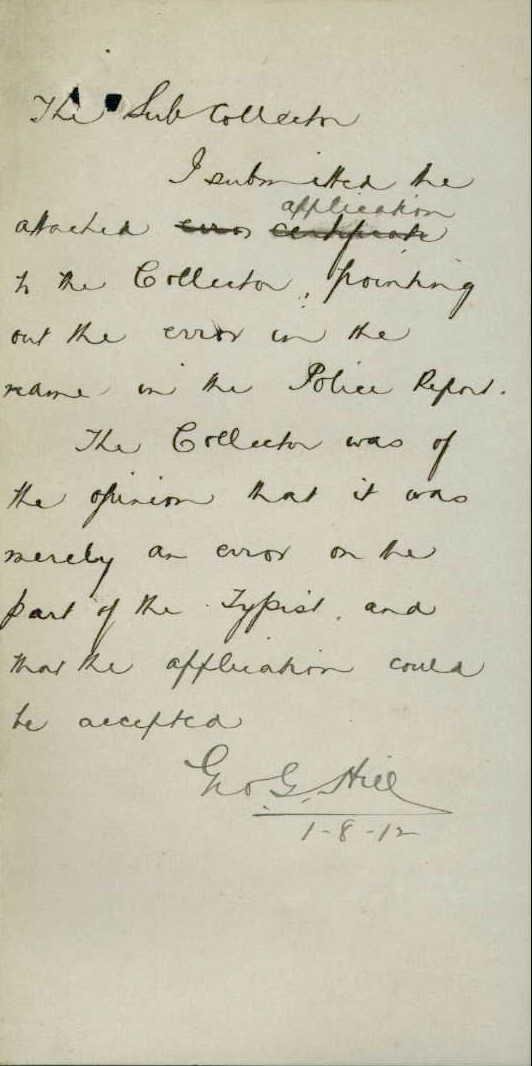 The Sub Collector
I submitted the
application
attached error certificate
to the Collector, pointing
out the error in the
name in the Police Report.
The Collector was of
the opinion that it was
merely an error on the
part of the Typist, and
that the application could
be accepted
Geo. G. Hill
1-8-12